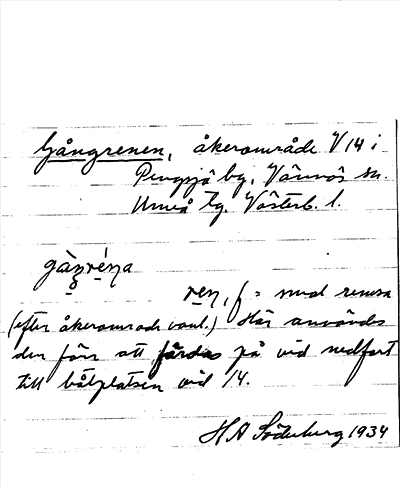 Gångrenen, åkerområde V 14 i
Pengsjö by, Vännäs sn.
Umeå tg. Västerb. l.
gàŋréna
ren, f = smal remsa
(efter åkerområde vanl.) Här användes
den förr att färdas på vid nedfart
till båtplatsen vid 14.
H A Söderberg 1934